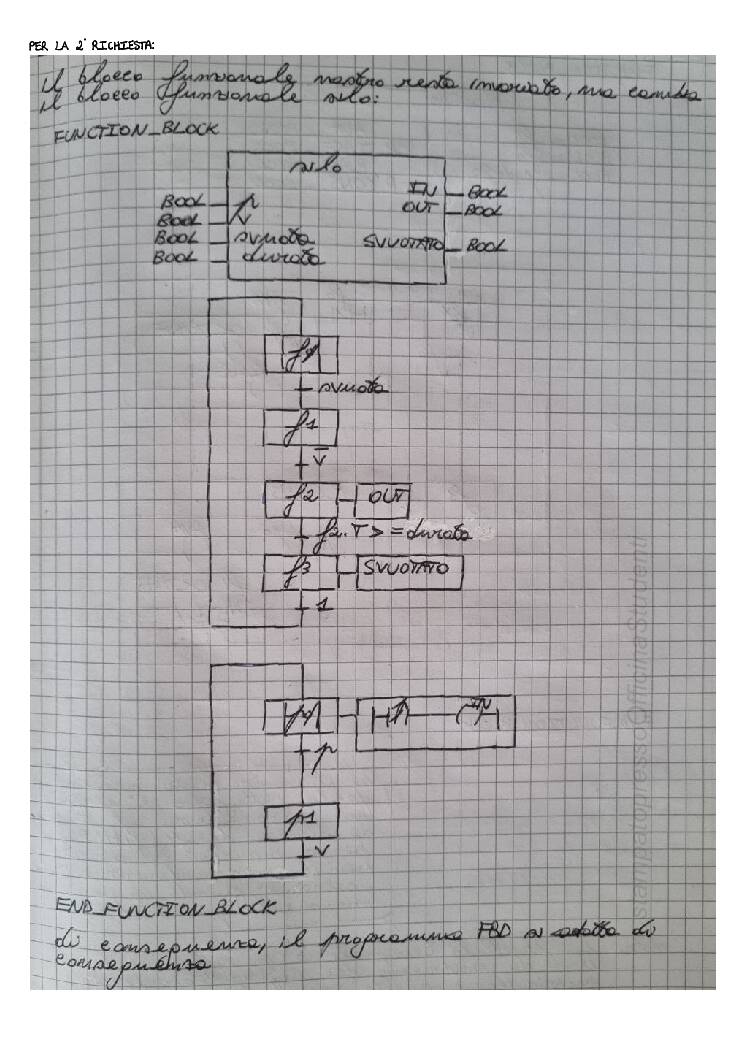 PER LA 2ª RICHIESTA:
il blocco funzionale nastro resta invariato, ma cambia
il blocco funzionale silo:
FUNCTION_BLOCK
silo
BOOL p IN BOOL
BOOL V OUT BOOL
BOOL svuota SVUOTATO BOOL
BOOL durata
svuota
f1
V̅
f2 OUT
f2.T >= durata
f3 SVUOTATO
1
IN
p
p1
V
END_FUNCTION_BLOCK
di conseguenza, il programma FBD si adatta di
conseguenza
stampatopressoOfficinaStudenti